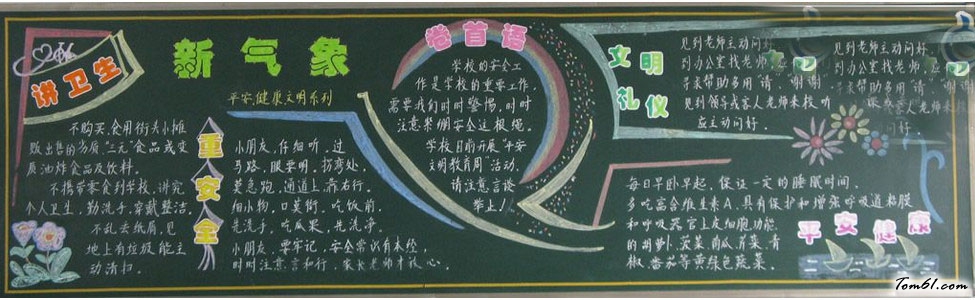 讲卫生
新气象
平安、健康、文明系列
不购买、食用街头小摊
贩出售的劣质"三元"食品或变
质油炸食品及饮料。
不携带零食到学校，讲究
个人卫生，勤洗手，穿戴整洁。
不乱丢纸屑，见
地上有垃圾能主
动清扫。
重安全
小朋友，仔细听，过
马路，眼要明，拐弯处，
莫急跑，通道上，靠右行。
细小物，口莫衔，吃饭前，
先洗手，吃瓜果，先洗净。
小朋友，要牢记，安全常识有本经，
时时注意言和行，家长老师才放心。
卷首语
学校的安全工
作是学校的重要工作，
需要我们时时警惕，时时
注意紧绷安全这根绳。
学校目前开展"平安
文明教育周"活动，
请注意言谈
举止！
文明
礼仪
见到老师主动问好
到办公室找老师，
寻求帮助多用"请
见到领导或客人老师来校 听
应主动问好。
见到老师主动问好
到办公室找老师，应
寻求帮助多用"请" "谢谢"
客人老师来校
问好。
每日早卧早起，保证一定的睡眠时间，
多吃富含维生素A，具有保护和增强呼吸道粘膜
和呼吸器官上皮细胞功能
的胡萝卜、菠菜、南瓜、芹菜、青
椒、番茄等黄绿色蔬菜。
平安健康
Tom61.com